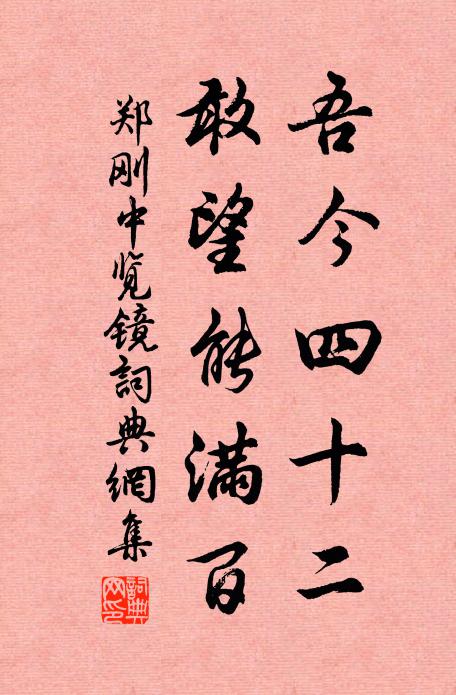 吾今四十二
敢望能满百
郑刚中览镜詞典網集
詞典網印